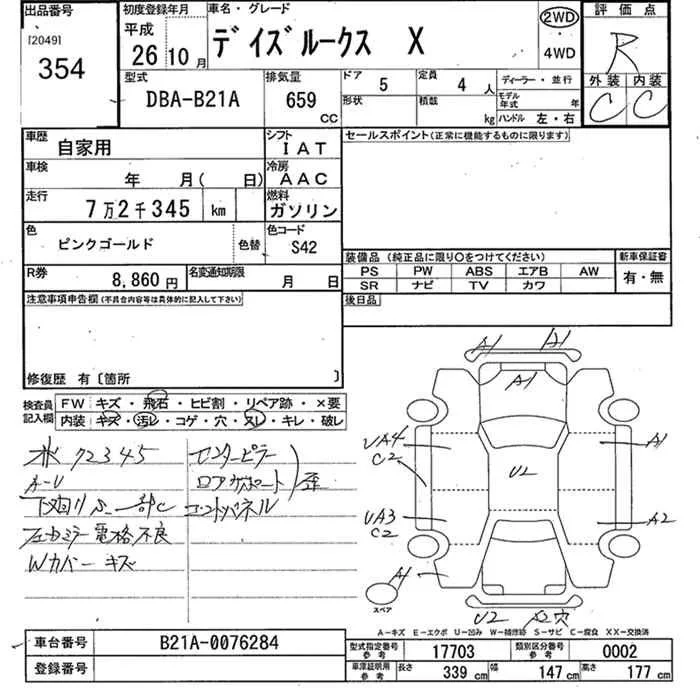 出品番号 初度登録年月 車名・グレード 2WD 評価点
[2049] 平成 デイズルークス X R
354 26 10月 4WD 外装 内装
型式 排気量 ドア 5 定員 4人 ディーラー・並行 C C
DBA-B21A 659 CC 形状 積載 kg モデル年式 年 ハンドル 左・右
車歴 自家用 シフト IAT セールスポイント(正常に機能するものに限ります)
車検 年 月( 日) 冷房 AAC
走行 7万2千345 km 燃料 ガソリン
色 ピンクゴールド 色替 色コード S42
装備品(純正品に限り〇をつけてください) 新車保証書
R券 8,860円 名変通知期限 月 日 PS PW ABS エアB AW 有・無
SR ナビ TV カワ
注意事項申告欄(不具合内容等は具体的に記入して下さい) 後日品
修復歴 有〔箇所 〕
検査員記入欄 FW キズ・飛石・ヒビ割・リペア跡・×要
内装 キズ・汚レ・コゲ・穴・スレ・キレ・破レ
72345 センターピラー
A-U ロアサポート 歪
下廻りS 一部C コントパネル
左ミラー電格不良
Wカバーキズ
A1 A1
A1
UA4 C2 A1
U2
UA3 C2 A2
A1
スペア
U2 A2穴
A-キズ E-エクボ U-凹み W-補修跡 S-サビ C-腐食 XX-交換済
車台番号 B21A-0076284 型式指定番号 参考 17703 類別区分番号 参考 0002
登録番号 車庫証明用 参考 長さ 339 cm 幅 147 cm 高さ 177 cm